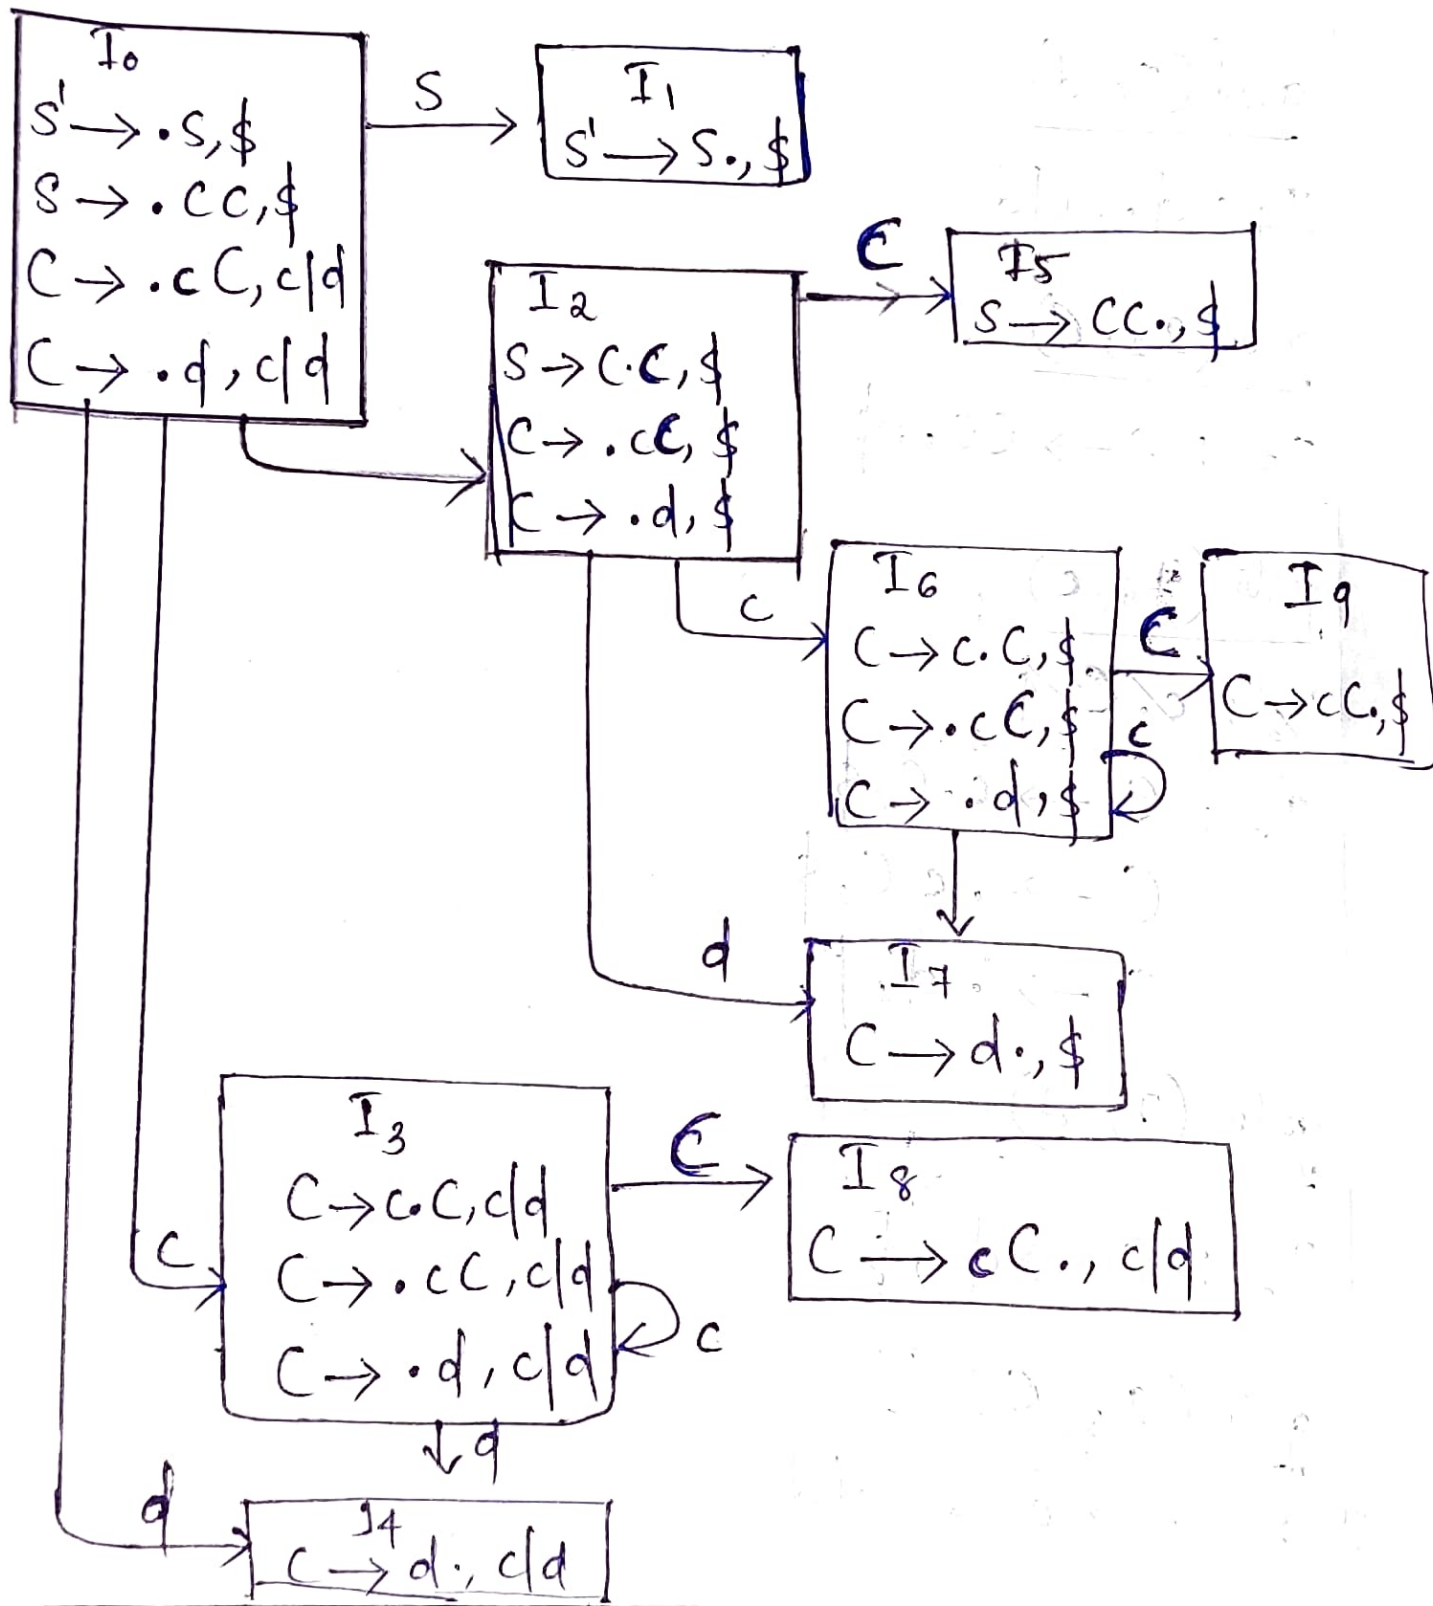 I0
S' → .S, $
S → .CC, $
C → .cC, c|d
C → .d, c|d
S
I1
S' → S., $
I2
S → C.C, $
C → .cC, $
C → .d, $
C
I5
S → CC., $
c
I6
C → c.C, $
C → .cC, $
C → .d, $
C
c
I9
C → cC., $
d
I7
C → d., $
c
I3
C → c.C, c|d
C → .cC, c|d
C → .d, c|d
C
c
I8
C → cC., c|d
d
d
I4
C → d., c|d